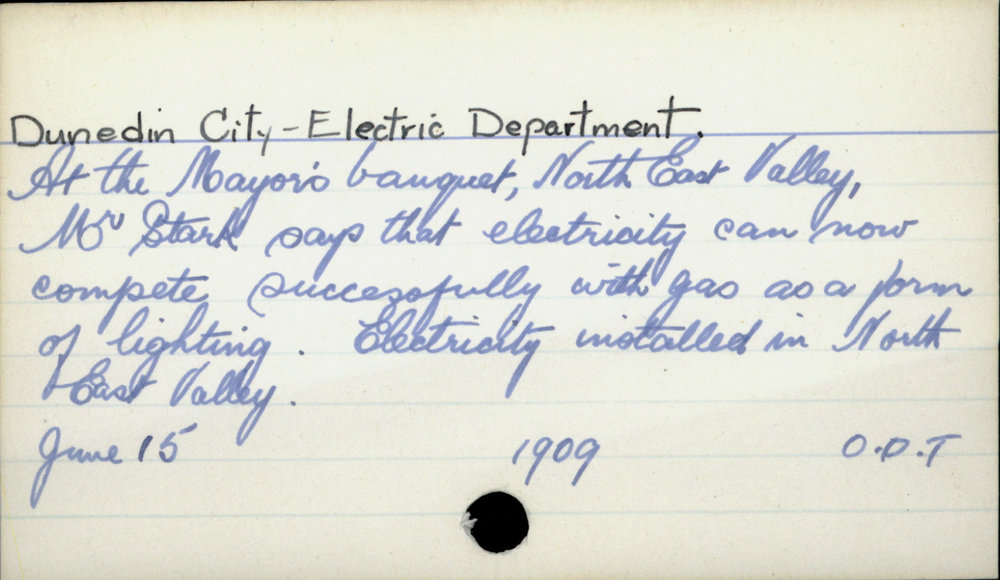 Dunedin City - Electric Department.
At the Mayor's banquet, North East Valley,
Mr Stark says that electricity can now
compete successfully with gas as a form
of lighting. Electricity installed in North
East Valley.
June 15 1909 O.D.T